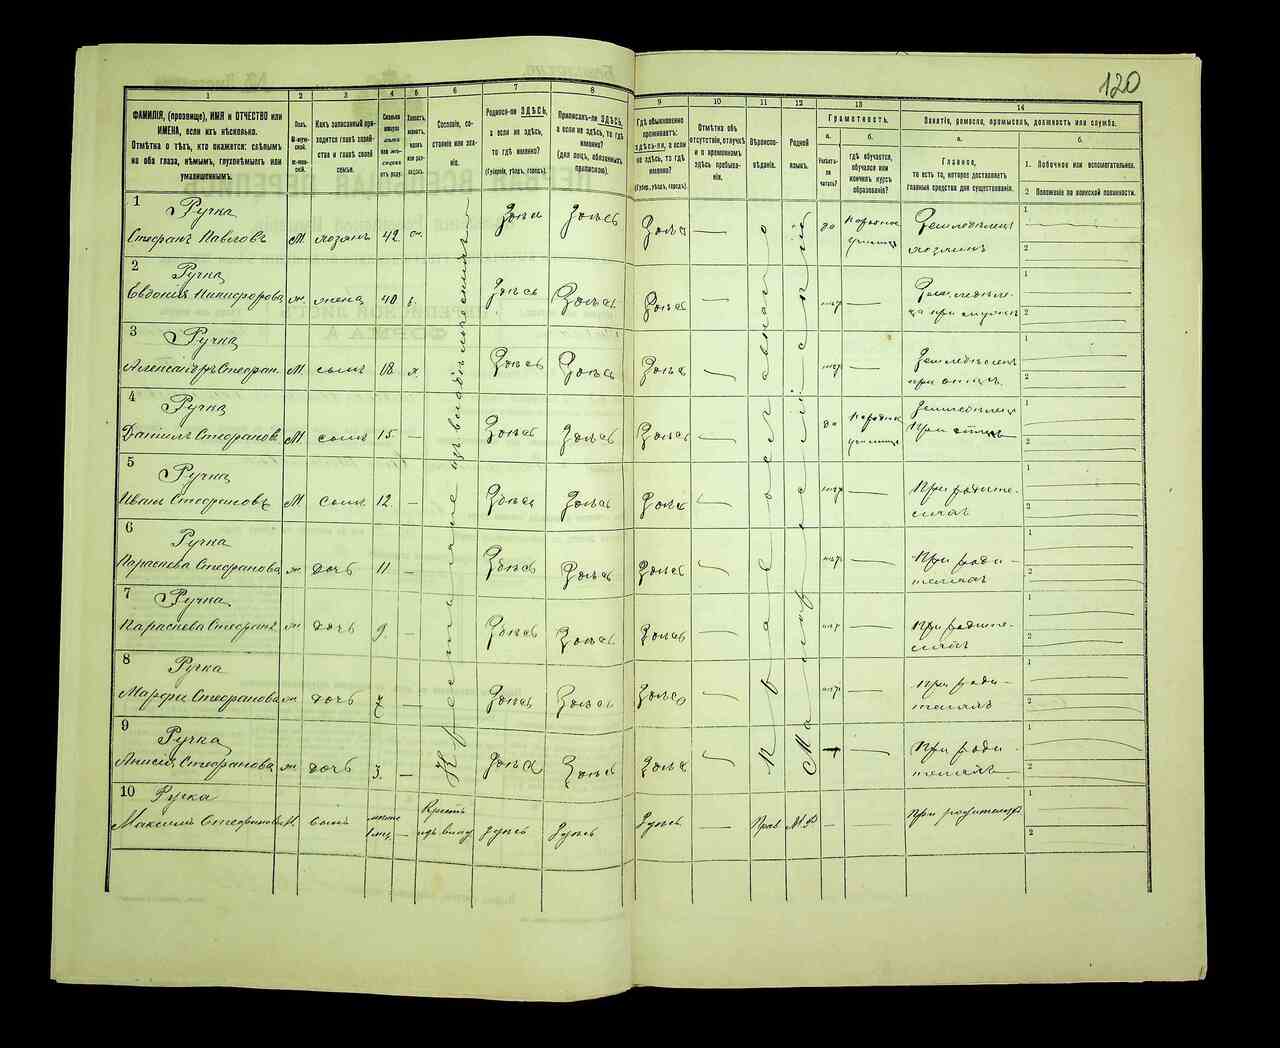 120
1 2 3 4 5 6 7 8 9 10 11 12 13 14
ФАМИЛІЯ, (прозвище), ИМЯ и ОТЧЕСТВО или ИМЕНА, если ихъ нѣсколько.
Отмѣтка о тѣхъ, кто окажется: слѣпымъ на оба глаза, нѣмымъ, глухонѣмымъ или умалишеннымъ.
Полъ.
Какъ записанный приходится главѣ хозяйства и главѣ своей семьи.
Сословіе, состояніе или званіе.
Родился-ли ЗДѢСЬ, а если не здѣсь, то гдѣ именно?
(Губернія, уѣздъ, городъ).
Приписанъ-ли ЗДѢСЬ, а если не здѣсь, то гдѣ именно?
(для лицъ, обязанныхъ припискою).
Гдѣ обыкновенно проживаетъ: ЗДѢСЬ-ли, а если не здѣсь, то гдѣ именно?
(Губер., уѣздъ, городъ).
Отмѣтка объ отсутствіи, отлучкѣ и о временномъ здѣсь пребываніи.
Вѣроисповѣданіе.
Родной языкъ.
Грамотность.
а.
Умѣетъ-ли читать?
б.
гдѣ обучается, обучался или кончилъ курсъ образованія?
Занятіе, ремесло, промыселъ, должность или служба.
а.
Главное,
то есть то, которое доставляетъ главныя средства для существованія.
б.
1. Побочное или вспомогательное.
2 Положеніе по воинской повинности.
Крестьяне изъ владѣльческихъ
Православное
Малороссійскій
1 Ручка
Стефанъ Павловъ М. хозяинъ 42 Здѣсь Здѣсь Здѣсь — да народное училище Земледѣлецъ хозяинъ 1 2
2 Ручка
Евдокія Никифорова ж. жена 40 Здѣсь Здѣсь Здѣсь — нѣтъ — при мужѣ 1 2
3 Ручка
Александръ Стефан. М сынъ 18 Здѣсь Здѣсь Здѣсь — нѣтъ — Земледѣлецъ при отцѣ 1 2
4 Ручка
Даніилъ Стефанов М сынъ 15 — Здѣсь Здѣсь Здѣсь — да народное училище Земледѣлецъ при отцѣ 1 2
5 Ручка
Иванъ Стефановъ М сынъ 12 — Здѣсь Здѣсь Здѣсь — нѣтъ — При родителяхъ 1 2
6 Ручка
Параскева Стефанова ж дочь 11 — Здѣсь Здѣсь Здѣсь — нѣтъ — При родителяхъ 1 2
7 Ручка
Параскева Стефанв ж дочь 9 — Здѣсь Здѣсь Здѣсь — нѣтъ — При родителяхъ 1 2
8 Ручка
Марфа Стефанова ж дочь 7 — Здѣсь Здѣсь Здѣсь — нѣтъ — при родителяхъ 1 2
9 Ручка
Анисія Стефанова ж дочь 3 — Здѣсь Здѣсь Здѣсь — — При родителяхъ 1 2
10 Ручка
Максимъ Стефановъ М сынъ менѣе 1 мц. — Крест изъ влад Здѣсь Здѣсь Здѣсь — Прав М.Р — При родителяхъ 1 2